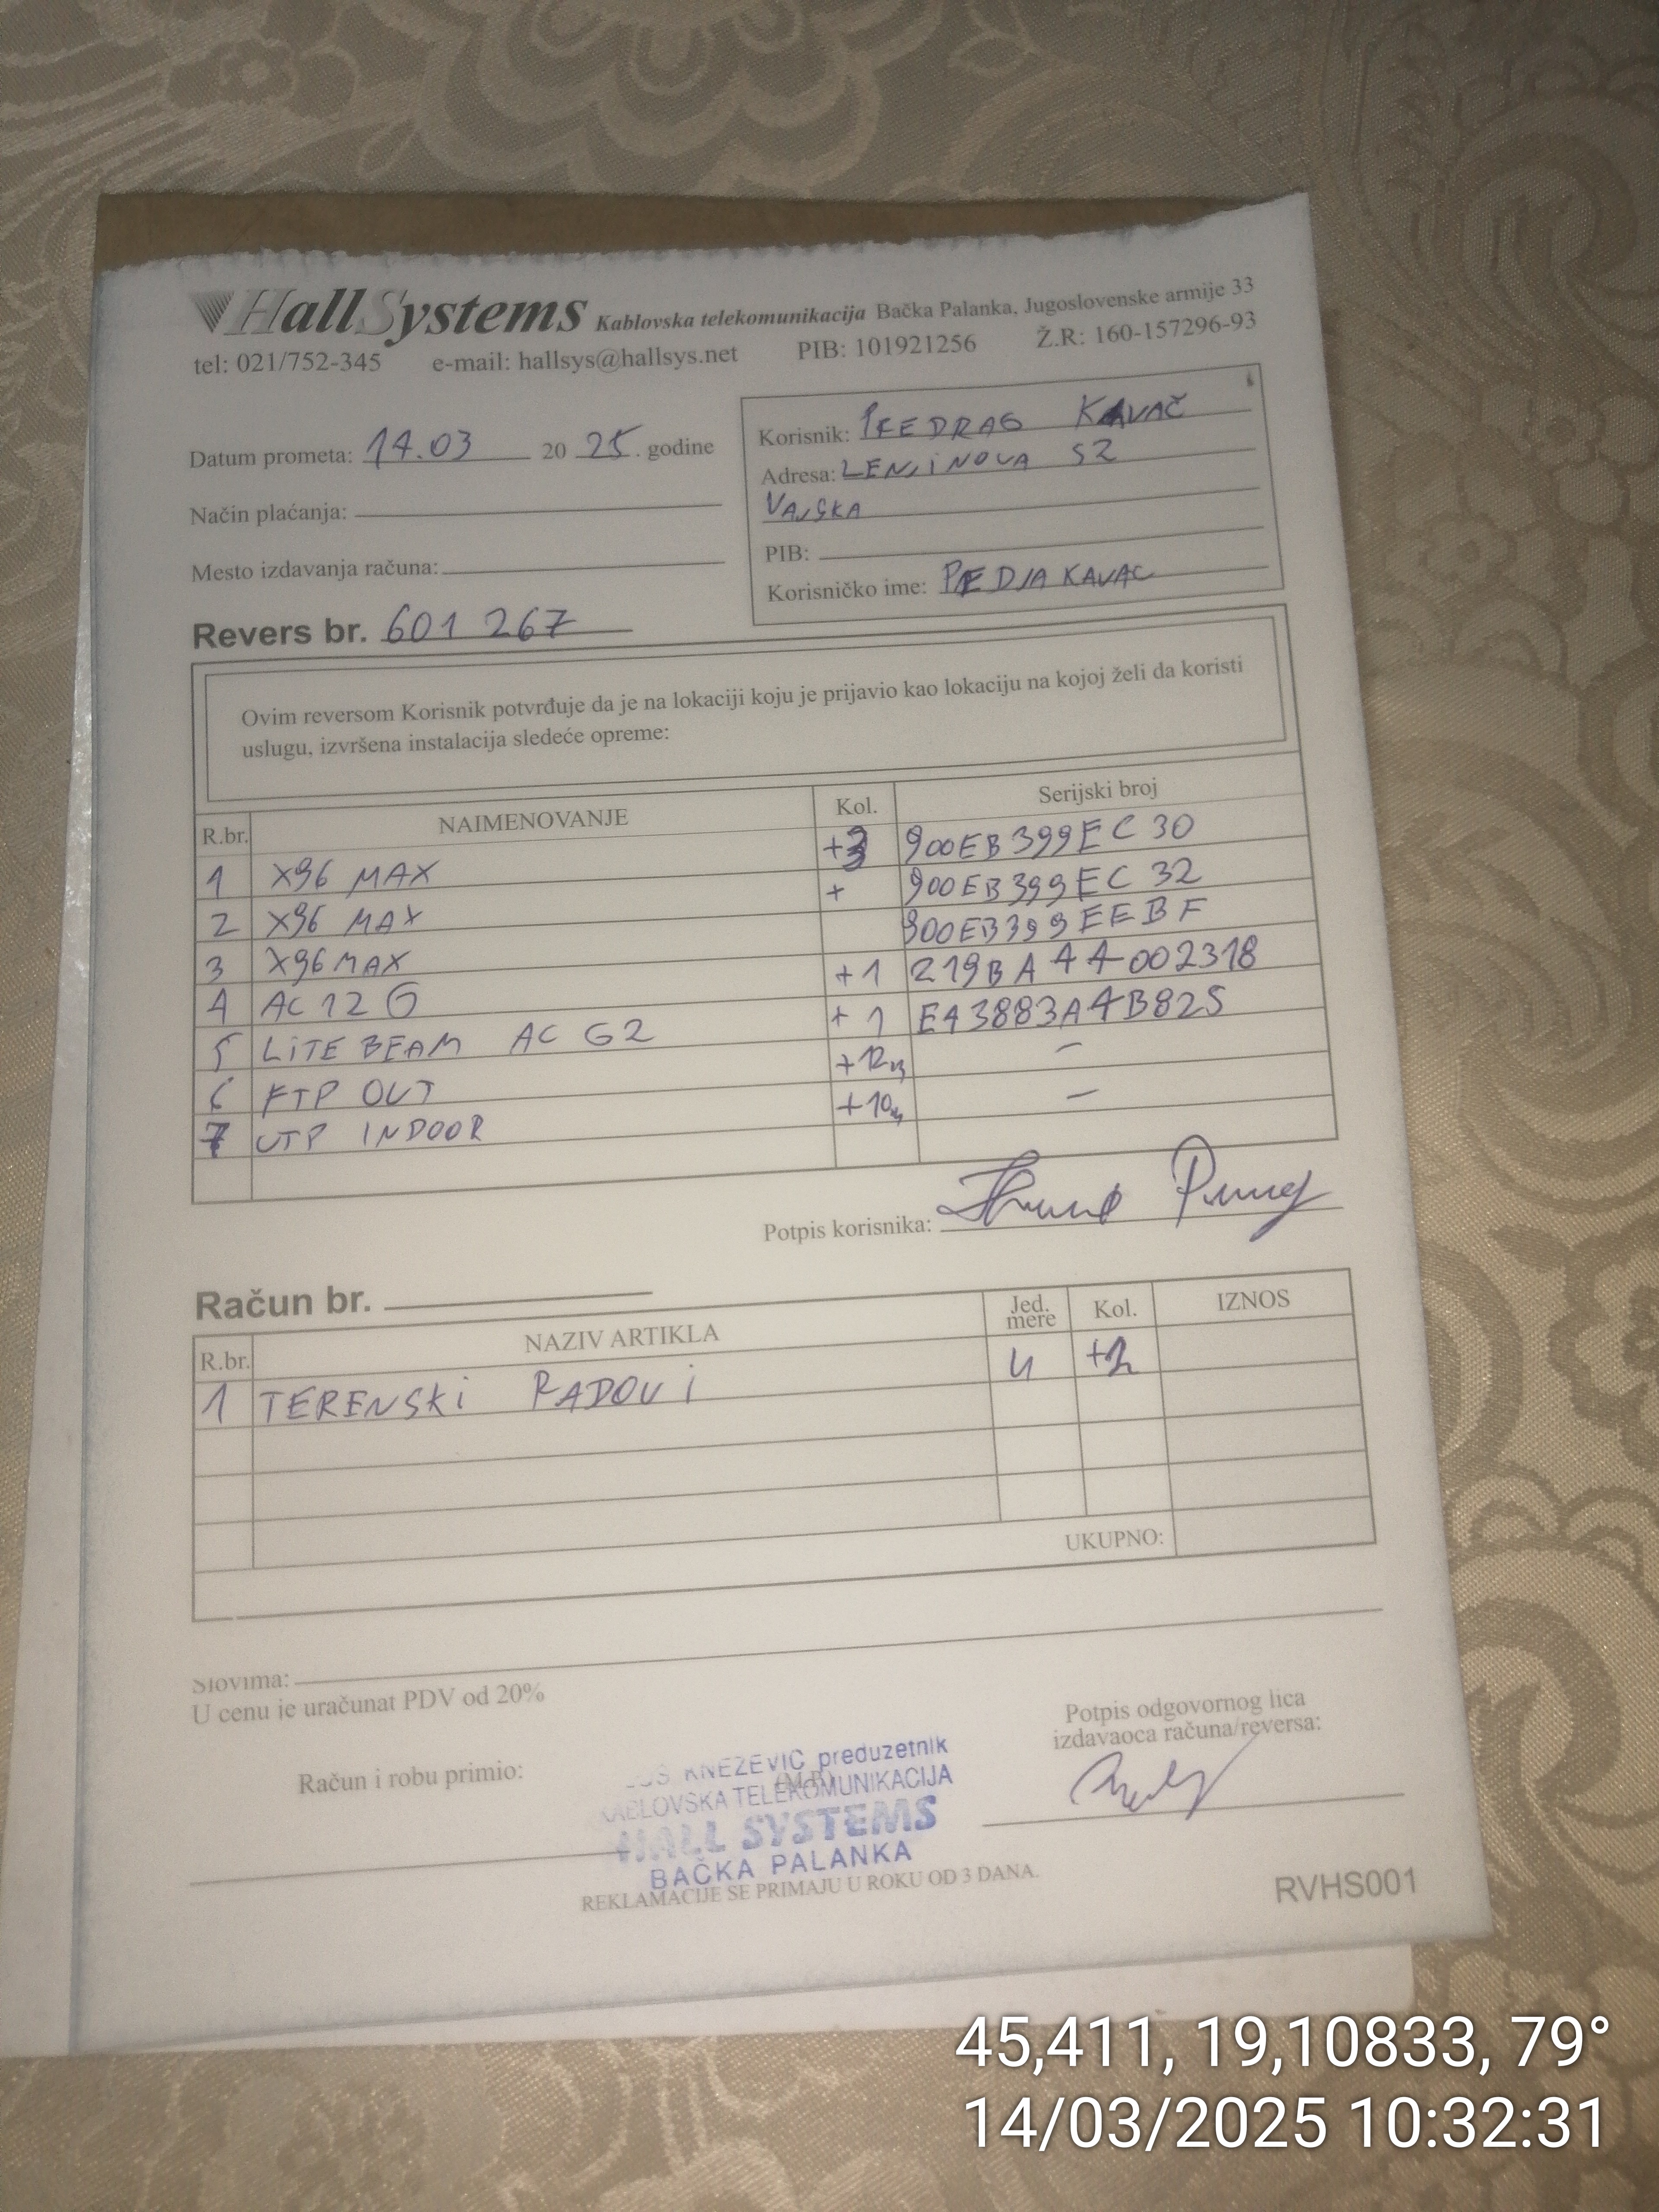 HallSystems Kablovska telekomunikacija Bačka Palanka, Jugoslovenske armije 33
tel: 021/752-345 e-mail: hallsys@hallsys.net PIB: 101921256 Ž.R: 160-157296-93
Datum prometa: 14.03 20 25. godine
Način plaćanja:
Mesto izdavanja računa:
Korisnik: PREDRAG KAVAČ
Adresa: LENJINOVA 52
VAJSKA
PIB:
Korisničko ime: PREDJAKAVAC
Revers br. 601 267
Ovim reversom Korisnik potvrđuje da je na lokaciji koju je prijavio kao lokaciju na kojoj želi da koristi
uslugu, izvršena instalacija sledeće opreme:
R.br. NAIMENOVANJE Kol. Serijski broj
1 X96 MAX +3 900EB399EC30
2 X96 MAX + 900EB399EC32
3 X96 MAX 900EB399EEBF
4 AC12G +1 219BA44002318
5 LITEBEAM AC G2 +1 E43883A4B825
6 FTP OUT +12m –
7 UTP INDOOR +10m –
Potpis korisnika:
Račun br.
R.br. NAZIV ARTIKLA Jed. mere Kol. IZNOS
1 TERENSKI RADOVI U
UKUPNO:
Slovima:
U cenu je uračunat PDV od 20%
Račun i robu primio:
(M.P.)
KNEŽEVIĆ preduzetnik
KABLOVSKA TELEKOMUNIKACIJA
HALL SYSTEMS
BAČKA PALANKA
Potpis odgovornog lica
izdavaoca računa/reversa:
REKLAMACIJE SE PRIMAJU U ROKU OD 3 DANA.
RVHS001
45,411, 19,10833, 79°
14/03/2025 10:32:31